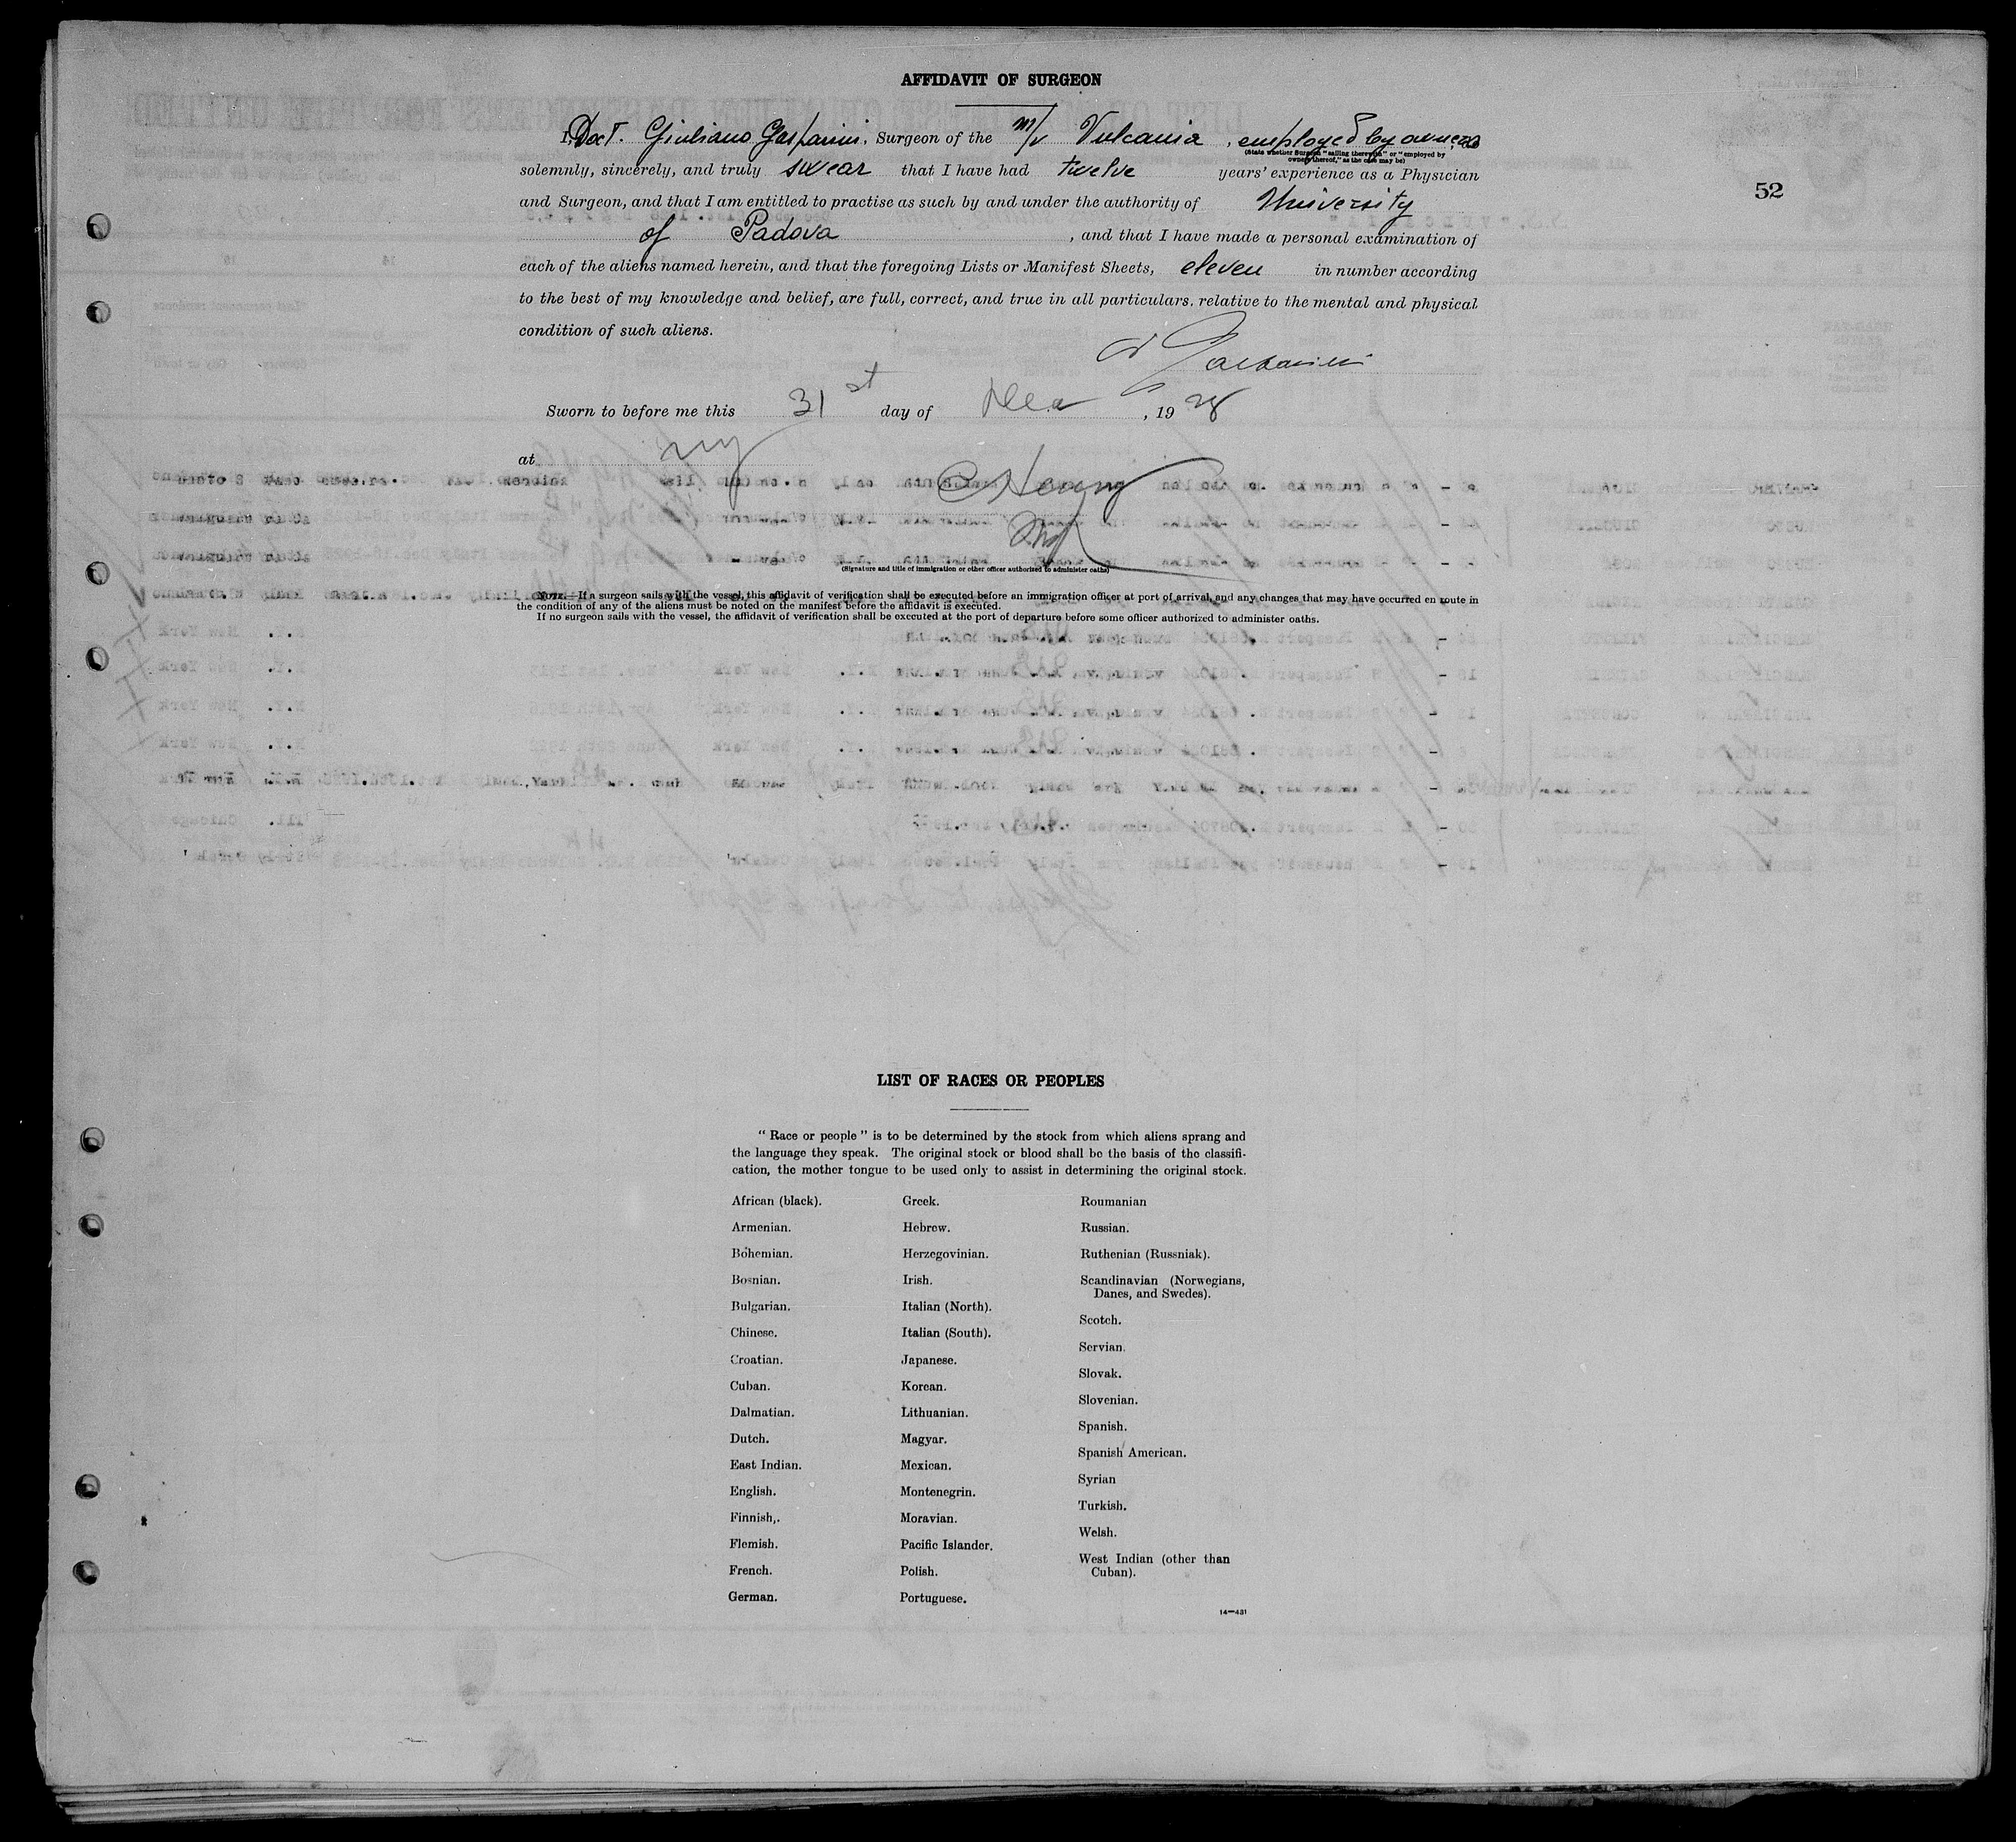 AFFIDAVIT OF SURGEON
52
I, Doct. Giuliano Gasparini, Surgeon of the M/V Vulcania, employed by owners
(State whether Surgeon "sailing therewith" or "employed by
owners thereof," as the case may be)
solemnly, sincerely, and truly swear that I have had twelve years' experience as a Physician
and Surgeon, and that I am entitled to practise as such by and under the authority of University
of Padova, and that I have made a personal examination of
each of the aliens named herein, and that the foregoing Lists or Manifest Sheets, eleven in number according
to the best of my knowledge and belief, are full, correct, and true in all particulars, relative to the mental and physical
condition of such aliens.
Gasparini
Sworn to before me this 31st day of Dec, 1928
at NY
(Signature and title of immigration or other officer authorized to administer oaths)
NOTE.—If a surgeon sails with the vessel, this affidavit of verification shall be executed before an immigration officer at port of arrival, and any changes that may have occurred en route in
the condition of any of the aliens must be noted on the manifest before the affidavit is executed.
If no surgeon sails with the vessel, the affidavit of verification shall be executed at the port of departure before some officer authorized to administer oaths.
LIST OF RACES OR PEOPLES
"Race or people" is to be determined by the stock from which aliens sprang and
the language they speak. The original stock or blood shall be the basis of the classifi-
cation, the mother tongue to be used only to assist in determining the original stock.
African (black).
Armenian.
Bohemian.
Bosnian.
Bulgarian.
Chinese.
Croatian.
Cuban.
Dalmatian.
Dutch.
East Indian.
English.
Finnish,.
Flemish.
French.
German.
Greek.
Hebrew.
Herzegovinian.
Irish.
Italian (North).
Italian (South).
Japanese.
Korean.
Lithuanian.
Magyar.
Mexican.
Montenegrin.
Moravian.
Pacific Islander.
Polish.
Portuguese.
Roumanian
Russian.
Ruthenian (Russniak).
Scandinavian (Norwegians,
Danes, and Swedes).
Scotch.
Servian.
Slovak.
Slovenian.
Spanish.
Spanish American.
Syrian
Turkish.
Welsh.
West Indian (other than
Cuban).
14—431